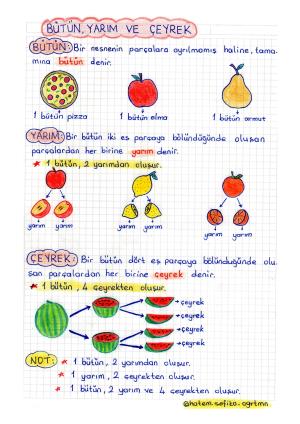 BÜTÜN, YARIM VE ÇEYREK
BÜTÜN: Bir nesnenin parçalara ayrılmamış haline, tama-
mına bütün denir.
1 bütün pizza 1 bütün elma 1 bütün armut
YARIM: Bir bütün iki eş parçaya bölündüğünde oluşan
parçalardan her birine yarım denir.
* 1 bütün, 2 yarımdan oluşur.
yarım yarım yarım yarım yarım yarım
ÇEYREK: Bir bütün dört eş parçaya bölündüğünde olu
şan parçalardan her birine çeyrek denir.
* 1 bütün, 4 çeyrekten oluşur.
çeyrek
çeyrek
çeyrek
çeyrek
NOT: * 1 bütün, 2 yarımdan oluşur.
* 1 yarım, 2 çeyrekten oluşur.
* 1 bütün, 2 yarım ve 4 çeyrekten oluşur.
@hatem.sefika.ogrtmn